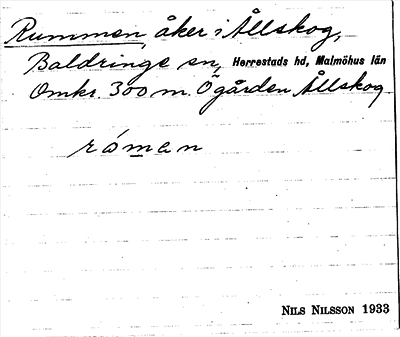 Rummen, åker i Ållskog,
Baldringe sn, Herrestads hd, Malmöhus län
Omkr. 300 m. Ö gården Ållskog
rómen
NILS NILSSON 1933